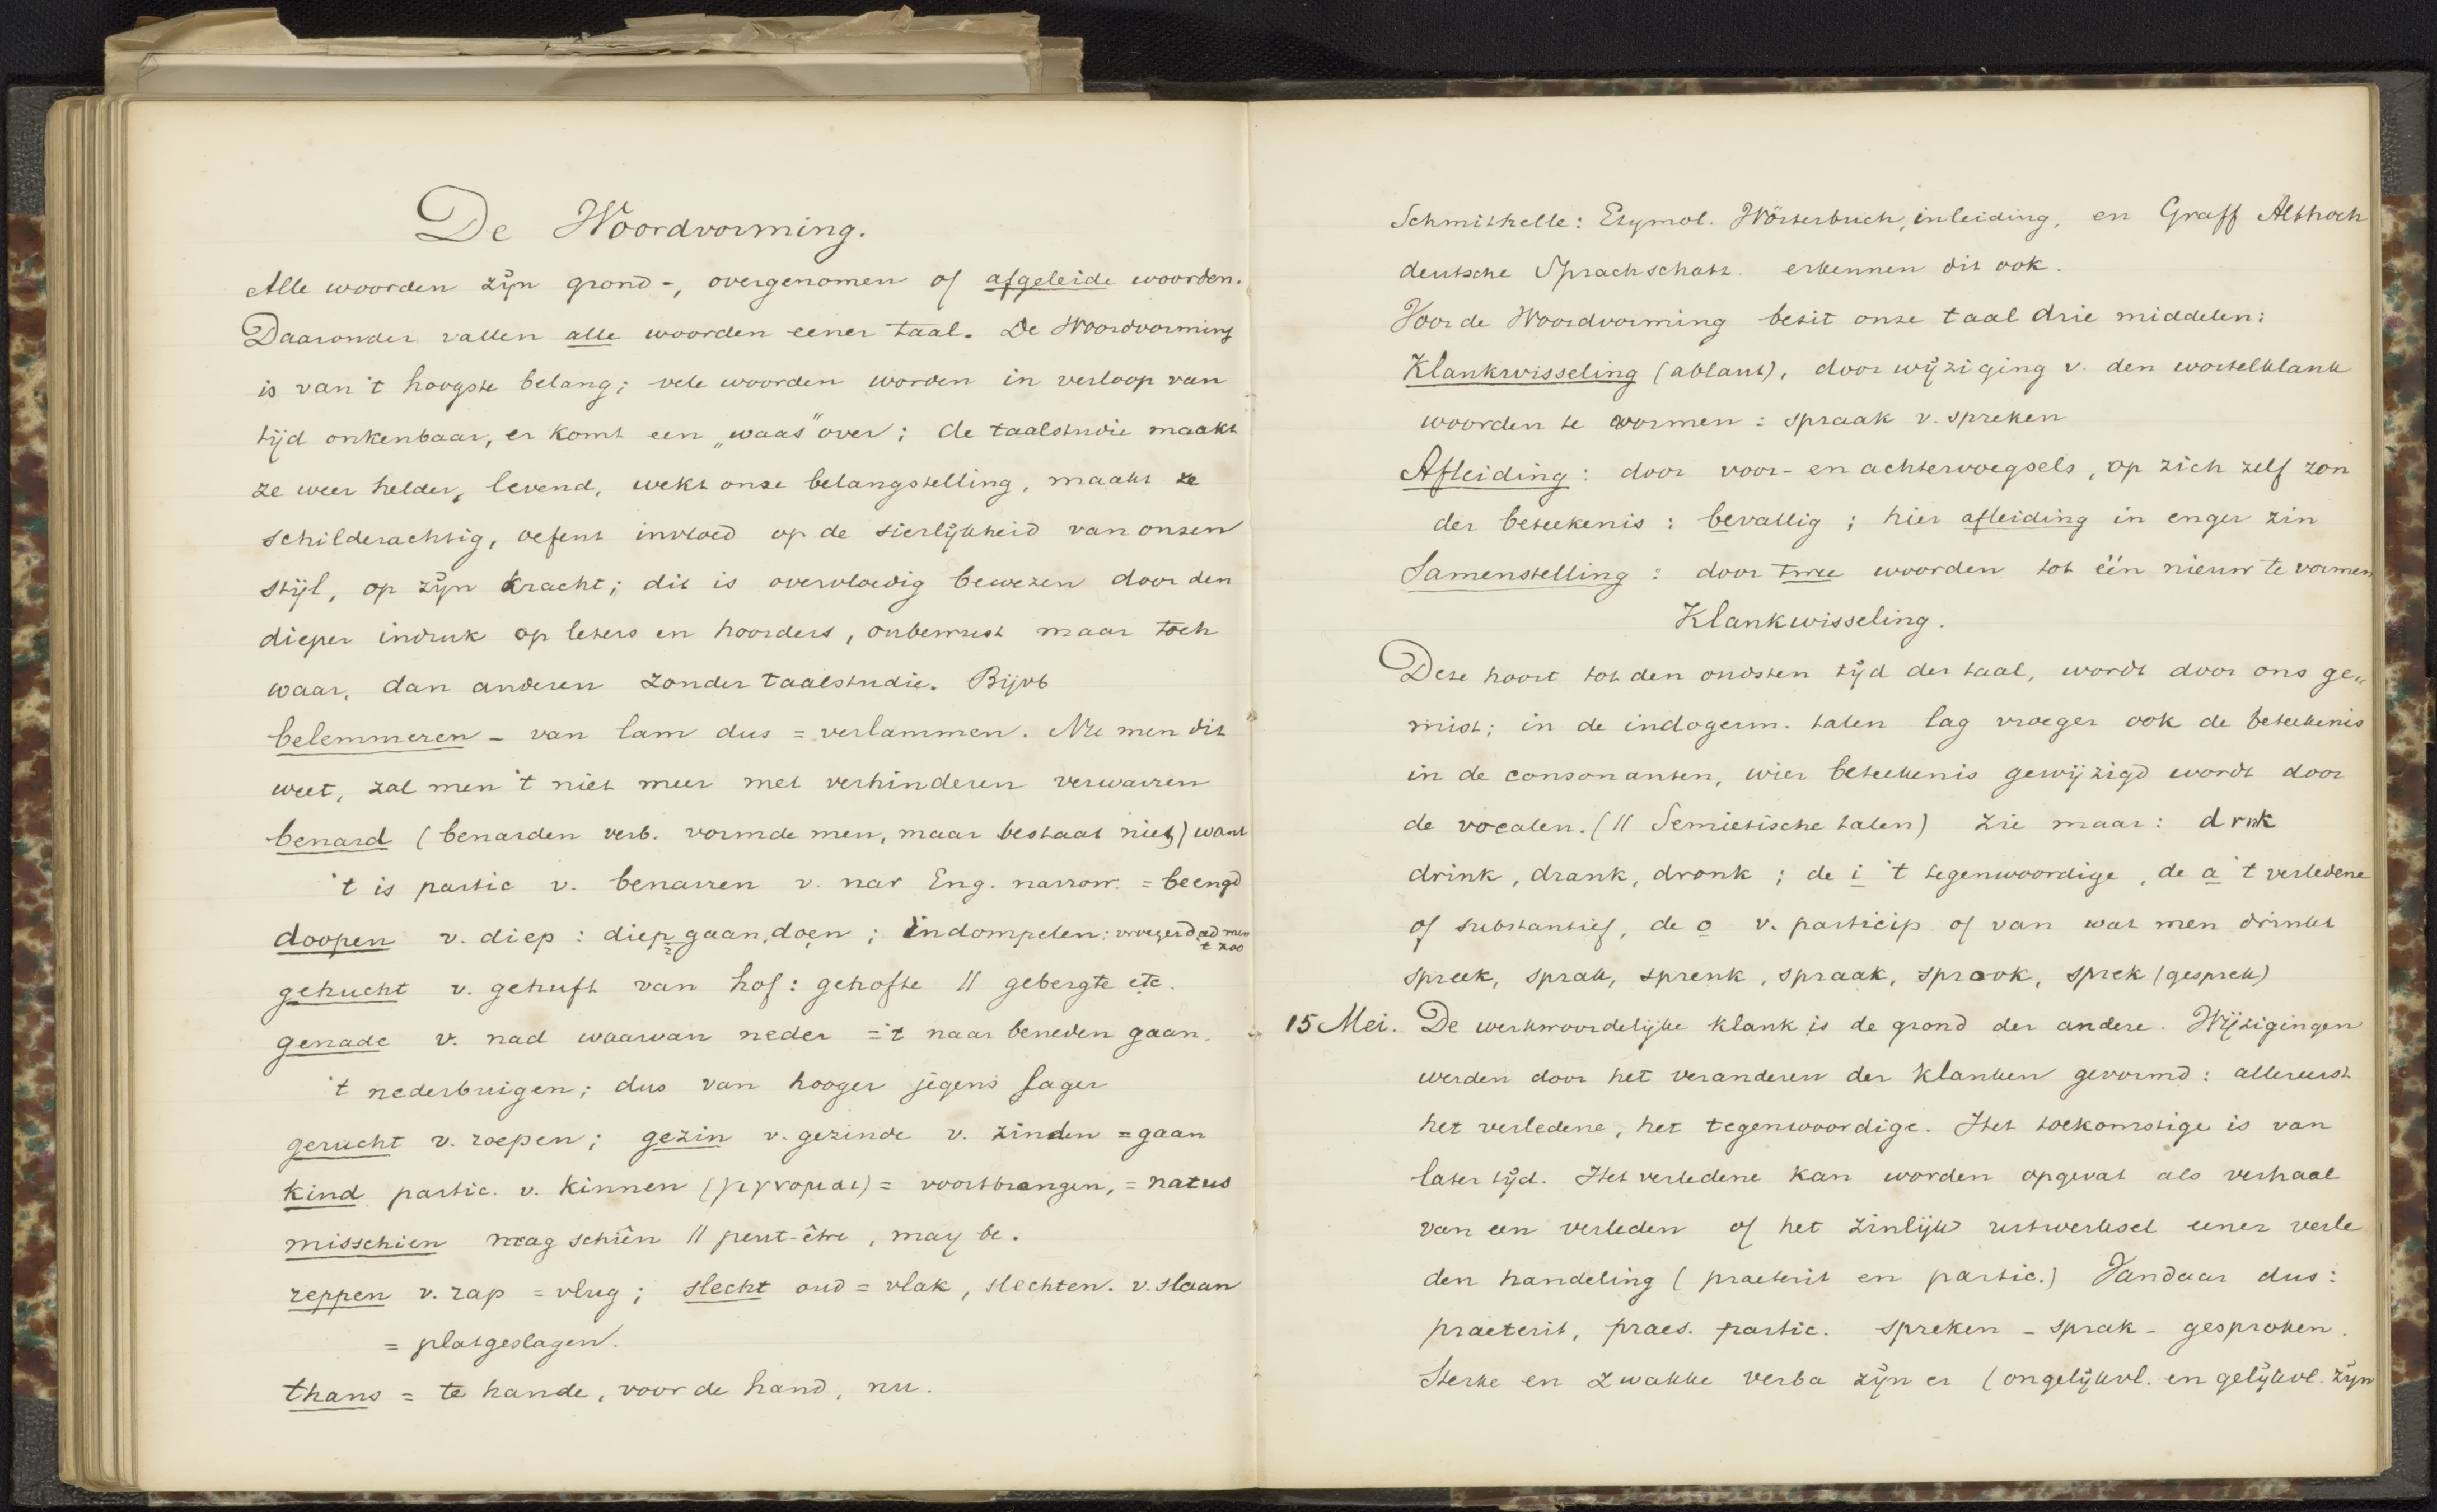 De Woordvorming.
Alle woorden zijn grond-, overgenomen of afgeleide woorden.
Daaronder vallen alle woorden eener taal. De Woordvorming
is van 't hoogste belang; vele woorden worden in verloop van
tijd onkenbaar, er komt een „waas" over; de taalstudie maakt
ze weer helder, levend, wekt onze belangstelling, maakt ze
schilderachtig, oefent invloed op de sierlijkheid van onzen
stijl, op zijn kracht; dit is overvloedig bewezen door den
dieper indruk op lezers en hoorders, onbewust maar toch
waar, dan anderen zonder taalstudie. Bijvb
belemmeren - van lam dus = verlammen. Nu men dit
weet, zal men 't niet meer met verhinderen verwarren
benard (benarden verb. vormde men, maar bestaat niet) want
't is partic v. benarren v. nar Eng. narrow. = beengd
doopen v. diep : diep gaan, doen ; indompelen: vroeger deed men
't zoo
gehucht v. gehuft van hof: gehofte // gebergte etc.
genade v. nad waarvan neder = 't naar beneden gaan.
't nederbuigen; dus van hooger jegens lager
gerucht v. roepen; gezin v. gezinde v. zinden = gaan
kind partic. v. kinnen (γιγνομαι) = voortbrengen, = natus
misschien mag schiên // peut-être, may be.
reppen v. rap = vlug; slecht oud = vlak, slechten. v. slaan
= platgeslagen.
thans = te hande, voor de hand, nu.
Schmitthelle: Etymol. Wörterbuch, inleiding, en Graff Althoch
deutsche Sprachschatz. erkennen dit ook.
Voor de Woordvorming bezit onze taal drie middelen:
Klankwisseling (ablaut), door wijziging v. den wortelklank
woorden te vormen : spraak v. spreken
Afleiding : door voor- en achtervoegsels, op zich zelf zon
der beteekenis : bevallig ; hier afleiding in enger zin
Samenstelling : door twee woorden tot één nieuw te vormen
Klankwisseling.
Deze hoort tot den oudsten tijd der taal, wordt door ons ge„
mist; in de indogerm. talen lag vroeger ook de beteekenis
in de consonanten, wier beteekenis gewijzigd wordt door
de vocalen. (// Semietische talen) Zie maar: drnk
drink, drank, dronk ; de i 't tegenwoordige, de a 't verledene
of substantief, de o v. particip of van wat men drinkt
spreek, sprak, spreuk, spraak, sprook, sprek (gesprek)
15 Mei. De werkwoordelijke klank is de grond der andere. Wijzigingen
werden door het veranderen der klanken gevormd : allereerst
het verledene, het tegenwoordige. Het toekomstige is van
later tijd. Het verledene kan worden opgevat als verhaal
van een verleden of het zinlijk uitwerksel eener verle
den handeling (praeterit en partic.) Vandaar dus:
praeterit, praes. partic. spreken - sprak - gesproken.
Sterke en zwakke verba zijn er (ongelijkvl. en gelijkvl. zijn